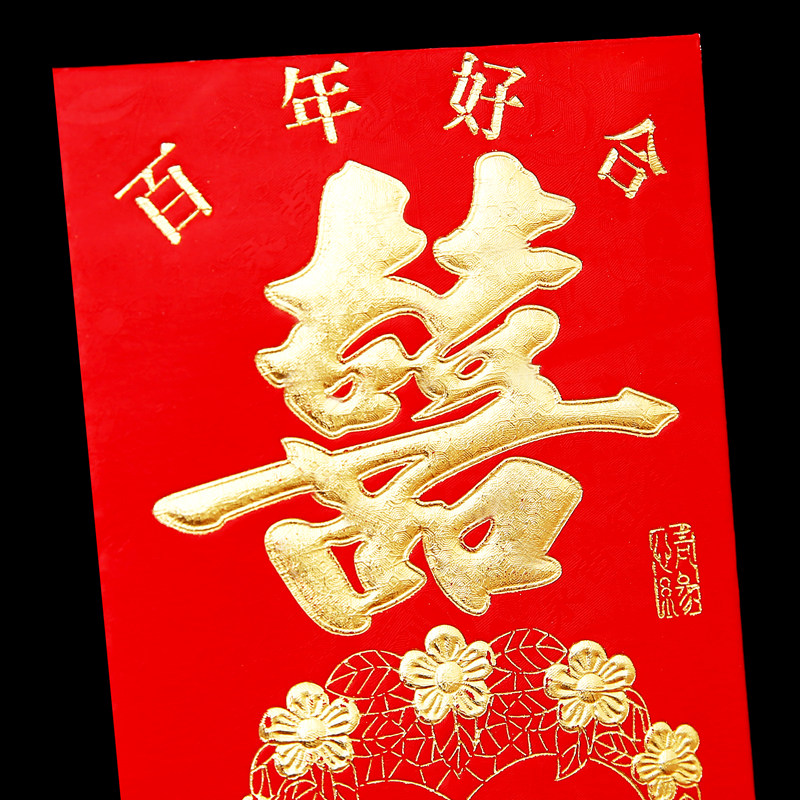 百年好合
囍
情缘